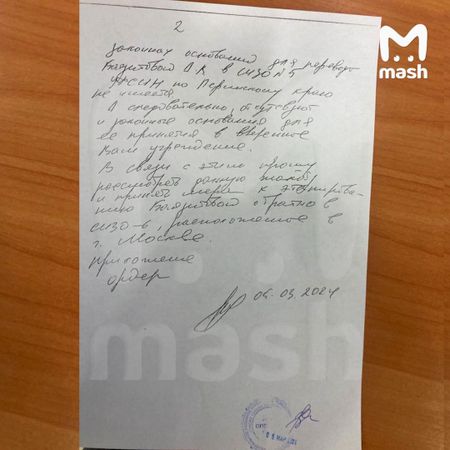 2
законных оснований для перевода
Баязитовой А К в СИЗО N5
УФСИН по Пермскому краю
не имеется.
А следовательно, отсутствуют
и законные основания для
ее принятия в вверенное
Вам учреждение.
В связи с этим прошу
рассмотреть данную жалобу
и принять меры к этапирова-
нию Баязитовой обратно в
СИЗО-6, расположенное в
г. Москве.
Приложение
ордер
05.03.2024
mash
mash